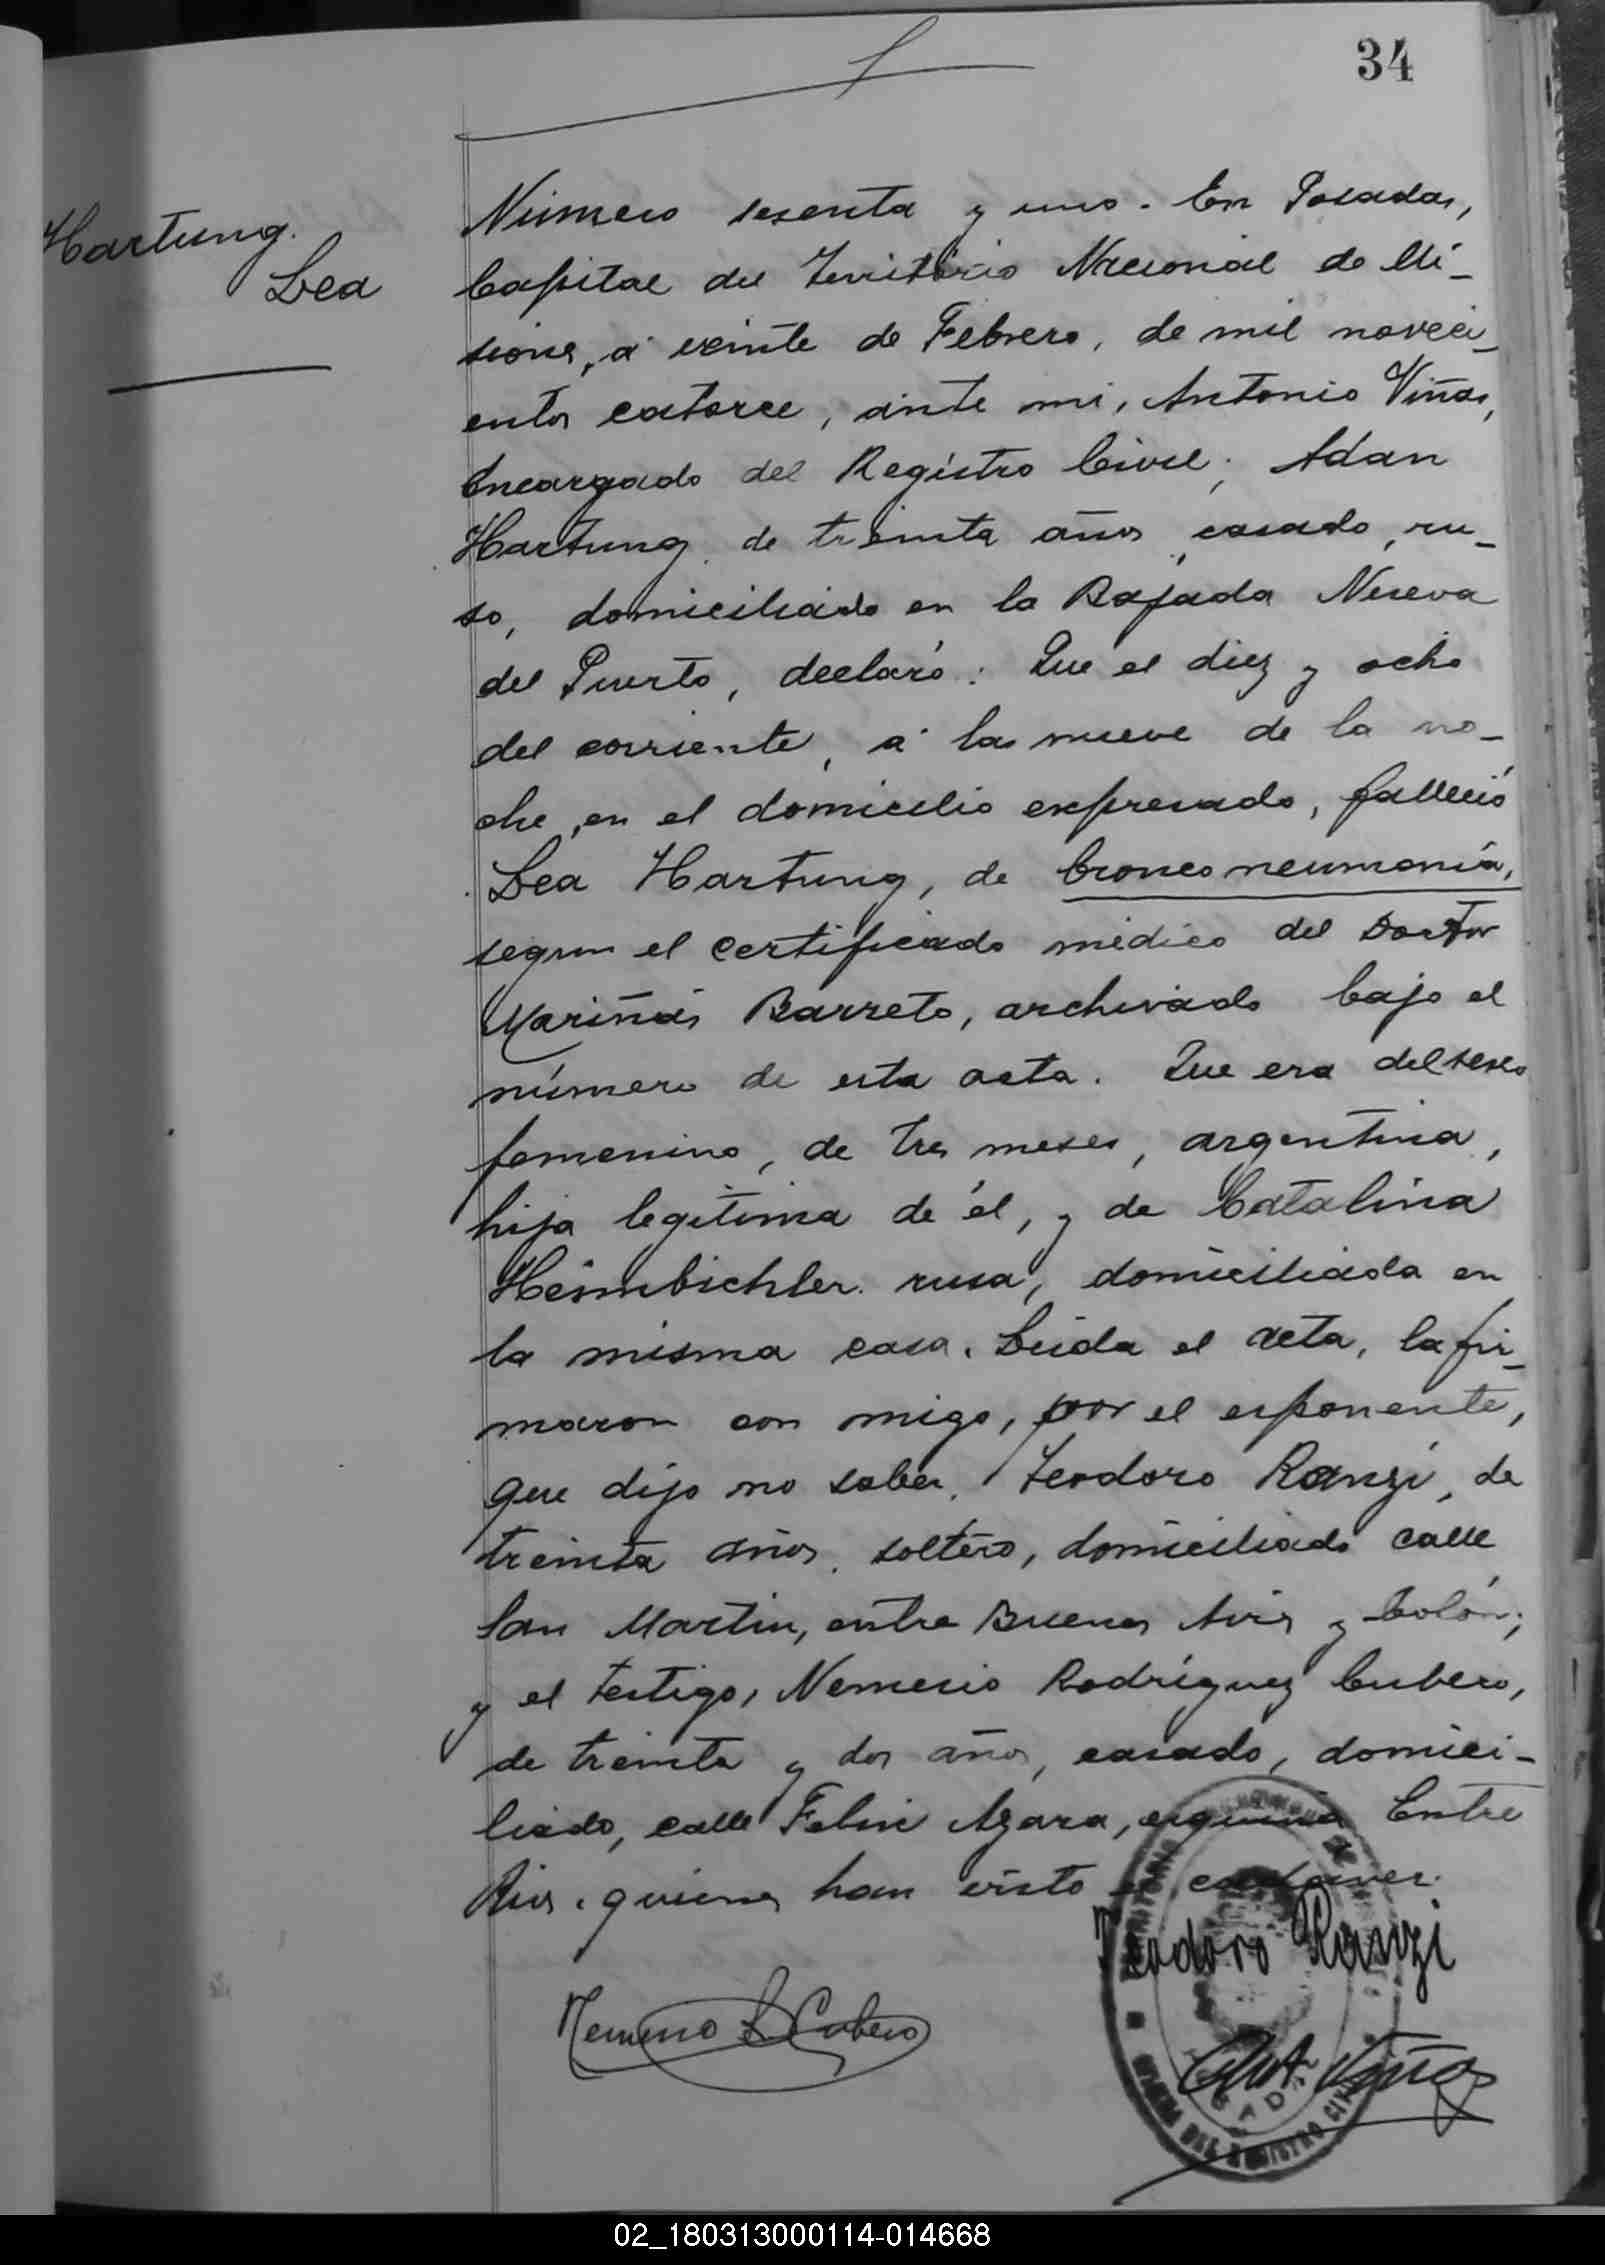 34
Hartung.
Lea
Número sesenta y uno. En Posadas,
Capital del Territorio Nacional de Mi-
siones, á veinte de Febrero, de mil noveci-
entos catorce, ante mi, Antonio Viñas,
Encargado del Registro Civil, Adan
Hartung, de treinta años, casado, ru-
so, domiciliado en la Bajada Nueva
del Puerto, declaró: Que el diez y ocho
del corriente, á las nueve de la no-
che, en el domicilio expresado, falleció
Lea Hartung, de bronconeumonía,
segun el certificado médico del Doctor
Mariñas Barreto, archivado bajo el
número de esta acta. Que era del sexo
femenino, de tres meses, argentina,
hija legítima de él, y de Catalina
Heimbichler, rusa, domiciliada en
la misma casa. Leida el acta, la fir-
maron con migo, por el esponente,
que dijo no saber, Teodoro Ranzi, de
treinta años, soltero, domiciliado calle
San Martin, entre Buenos Aires y Colón;
y el testigo, Nemesio Rodríguez Cubero,
de treinta y dos años, casado, domici-
liado, calle Felix Azara, esquina Entre
Rios, quienes han visto el cadaver.
Teodoro Ranzi
Nemesio R. Cubero
Ant. Viñas
02_180313000114-014668